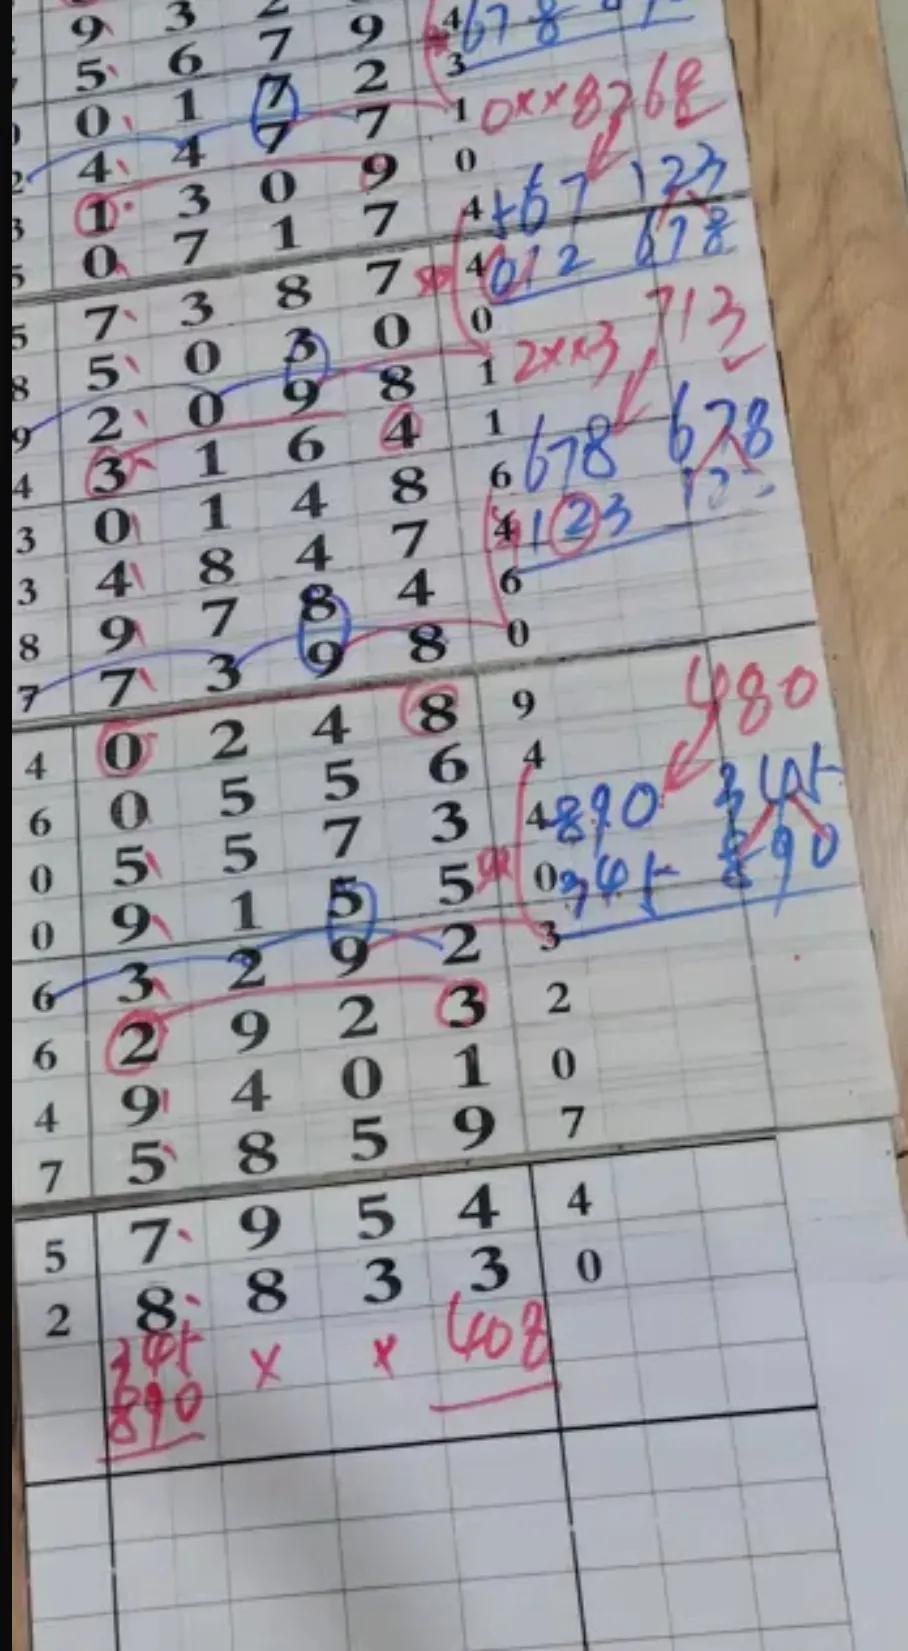 9 3 2
5 6 7 9 4 678
0 1 7 2 3
4 4 7 7 1 0××8 268
1 3 0 9 0
0 7 1 7 4 567 123
5 7 3 8 7 4 012 678
8 5 0 3 0 0 713
9 2 0 9 8 1 2××3
4 3 1 6 4 1 678 678
3 0 1 4 8 6 123
3 4 8 4 7 4
8 9 7 8 4 6
7 7 3 9 8 0
4 0 2 4 8 9 480
6 0 5 5 6 4
0 5 5 7 3 4 890 345
0 9 1 5 5 0 345 890
6 3 2 9 2 3
6 2 9 2 3 2
4 9 4 0 1 0
7 5 8 5 9 7
5 7 9 5 4 4
2 8 8 3 3 0
345 × × 408
890